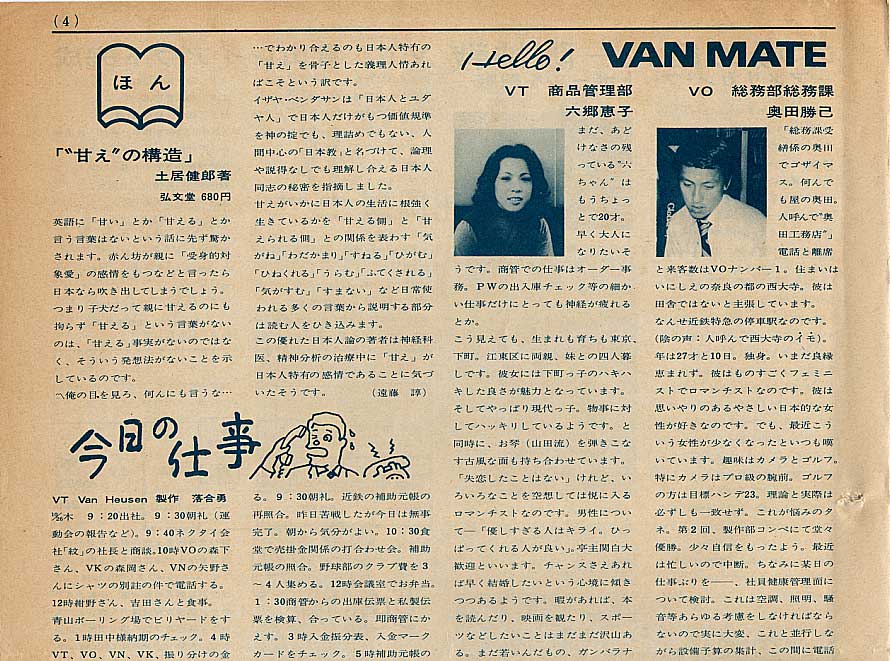 (4)
ほん
「〝甘え〟の構造」
土居健郎著
弘文堂 680円
英語に「甘い」とか「甘える」とか
言う言葉はないという話に先ず驚か
されます。赤ん坊が親に「受身的対
象愛」の感情をもつなどと言ったら
日本なら吹き出してしまうでしょう。
つまり子犬だって親に甘えるのにも
拘らず「甘える」という言葉がない
のは、「甘える」事実がないのではな
く、そういう発想法がないことを示
しているのです。
〽俺の目を見ろ、何んにも言うな…
…でわかり合えるのも日本人特有の
「甘え」を骨子とした義理人情あれ
ばこそという訳です。
イザヤ・ベンダサンは「日本人とユダ
ヤ人」で日本人だけがもつ価値規準
を神の掟でも、理詰めでもない、人
間中心の「日本教」と名づけて、論理
や説得なしでも理解し合える日本人
同志の秘密を指摘しました。
甘えがいかに日本人の生活に根強く
生きているかを「甘える側」と「甘
えられる側」との関係を表わす「気
がね」「わだかまり」「すねる」「ひがむ」
「ひねくれる」「うらむ」「ふてくされる」
「気がすむ」「すまない」など日常使
われる多くの言葉から説明する部分
は読む人をひき込みます。
この優れた日本人論の著者は神経科
医、精神分析の治療中に「甘え」が
日本人特有の感情であることに気づ
いたそうです。 (遠藤 諄)
今日の仕事
VT Van Heusen 製作 落合勇
木 9:20出社。9:30朝礼(運
動会の報告など)。9:40ネクタイ会
社「紋」の社長と商談。10時VOの森下
さん、VKの森岡さん、VNの矢野さ
んにシャツの別註の件で電話する。
12時紺野さん、吉田さんと食事。
青山ボーリング場でビリヤードをす
る。1時田中様納期のチェック。4時
VT、VO、VN、VK、振り分けの金
る。9:30朝礼。近鉄の補助元帳の
再照合。昨日苦戦したが今日は無事
完了。朝から気分がよい。10:30食
堂で売掛金関係の打合わせ会。補助
元帳の照合。野球部のクラブ費を3
～4人集める。12時会議室でお弁当。
1:30商管からの出庫伝票と私製伝
票を検算、合っている。即商管にか
えす。3時入金振分表、入金マーク
カードをチェック。5時補助元帳の
Hello! VAN MATE
VT 商品管理部
六郷恵子
まだ、あど
けなさの残
っている〝六
ちゃん〟は
もうちょっ
とで20才。
早く大人に
なりたいそ
うです。商管での仕事はオーダー事
務。PWの出入庫チェック等の細か
い仕事だけにとっても神経が疲れる
とか。
こう見えても、生まれも育ちも東京、
下町。江東区に両親、妹との四人暮
しです。彼女には下町っ子のハキハ
キした良さが魅力となっています。
そしてやっぱり現代っ子。物事に対
してハッキリしているようです。と
同時に、お琴(山田流)を弾きこな
す古風な面も持ち合わせています。
「失恋したことはない」けれど、い
ろいろなことを空想しては悦に入る
ロマンチストなのです。男性につい
て―「優しすぎる人はキライ。ひっ
ぱってくれる人が良い」。亭主関白大
歓迎といいます。チャンスさえあれ
ば早く結婚したいという心境に傾き
つつあるようです。暇があれば、本
を読んだり、映画を観たり、スポー
ツなどしたいことはまだまだ沢山あ
る。まだ若いんだもの、ガンバラナ
VO 総務部総務課
奥田勝己
「総務課受
繕係の奥田
でゴザイマ
ス。何んで
も屋の奥田。
人呼んで〝奥
田工務店〟」
電話と離席
と来客数はVOナンバー1。住まいは
いにしえの奈良の都の西大寺。彼は
田舎ではないと主張しています。
なんせ近鉄特急の停車駅なのです。
(陰の声:人呼んで西大寺のイモ)。
年は27才と10日。独身。いまだ良縁
恵まれず。彼はものすごくフェミニ
ストでロマンチストなのです。彼は
思いやりのあるやさしい日本的な女
性が好きなのです。でも、最近こう
いう女性が少なくなったといつも嘆
いています。趣味はカメラとゴルフ。
特にカメラはプロ級の腕前。ゴルフ
の方は目標ハンデ23。理論と実際は
必ずしも一致せず。これが悩みのタ
ネ。第2回、製作部コンペにて堂々
優勝。少々自信をもったよう。最近
は忙しいので中断。ちなみに某日の
仕事ぶりを――、社員健康管理面に
ついて検討。これは空調、照明、騒
音等あらゆる考慮をしなければなら
ないので実に大変、これと並行しな
がら設備予算の集計、この間に電話